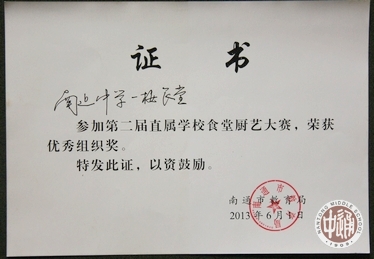 证书
南通中学一梅食堂
参加第二届直属学校食堂厨艺大赛，荣获
优秀组织奖。
特发此证，以资鼓励。
南通市教育局
2013年6月
NANTONG MIDDLE SCHOOL
1909